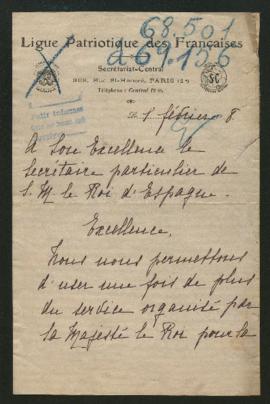 68.501
à 69.156
Ligue Patriotique des Françaises
Secrétariat-Central
368, Rue St-Honoré, PARIS (1er)
Téléphone : Central
Le 1 février 8
A Son Excellence le
Secrétaire particulier de
S. M. le Roi d'Espagne.
Excellence,
Nous nous permettons
d'user une fois de plus
du service organisé par
Sa Majesté le Roi pour la